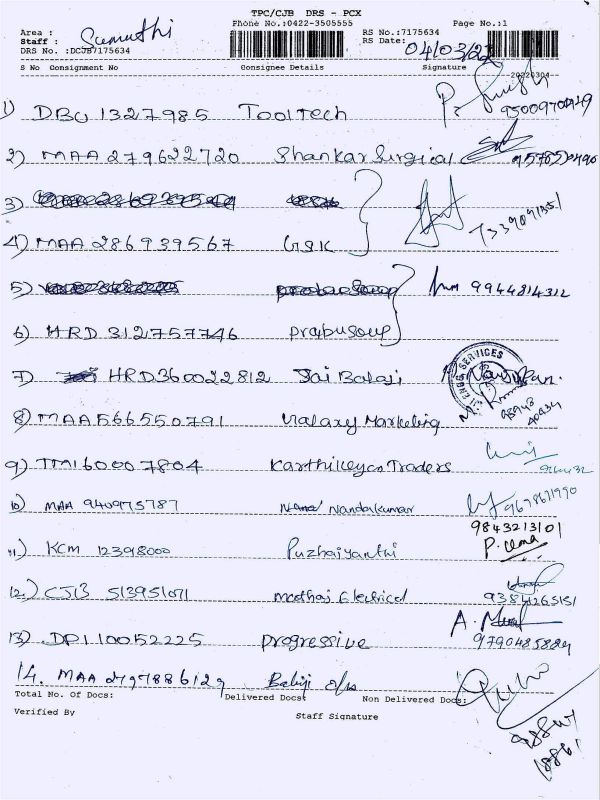 TPC/CJB DRS - PCX
Phone No.:0422-3505555 Page No.:1
Area :
Staff : Sumathi
RS No.:7175634
RS Date: 04/03/22
DRS No. :DCJB7175634
S No Consignment No Consignee Details Signature
20220304
1) DBU 1327985 Tooltech
2) MAA 279622720 Shankar Surgical
3)
4) MAA 286939567 GSK
5) 9944814312
6) HRD 312757746 prabusoup
7) HRD360022812 Sai Balaji
ENGG SERVICES
8) MAA566550791 Galaxy Marketing
9) TMI60007804 Karthikeyan Traders
10) MAA 940975787 Nandakumar 9678671990
9843213101
11) KCM 12398000 Puzhaiyanthi P. Uma
12) CJB 513951071 mathaj Electrical 9384265151
13) DPI 10052225 progressive 9790485884
14. MAA 2797886129 Balaji o/s
Total No. Of Docs: Delivered Docs: Non Delivered Docs:
Verified By Staff Signature